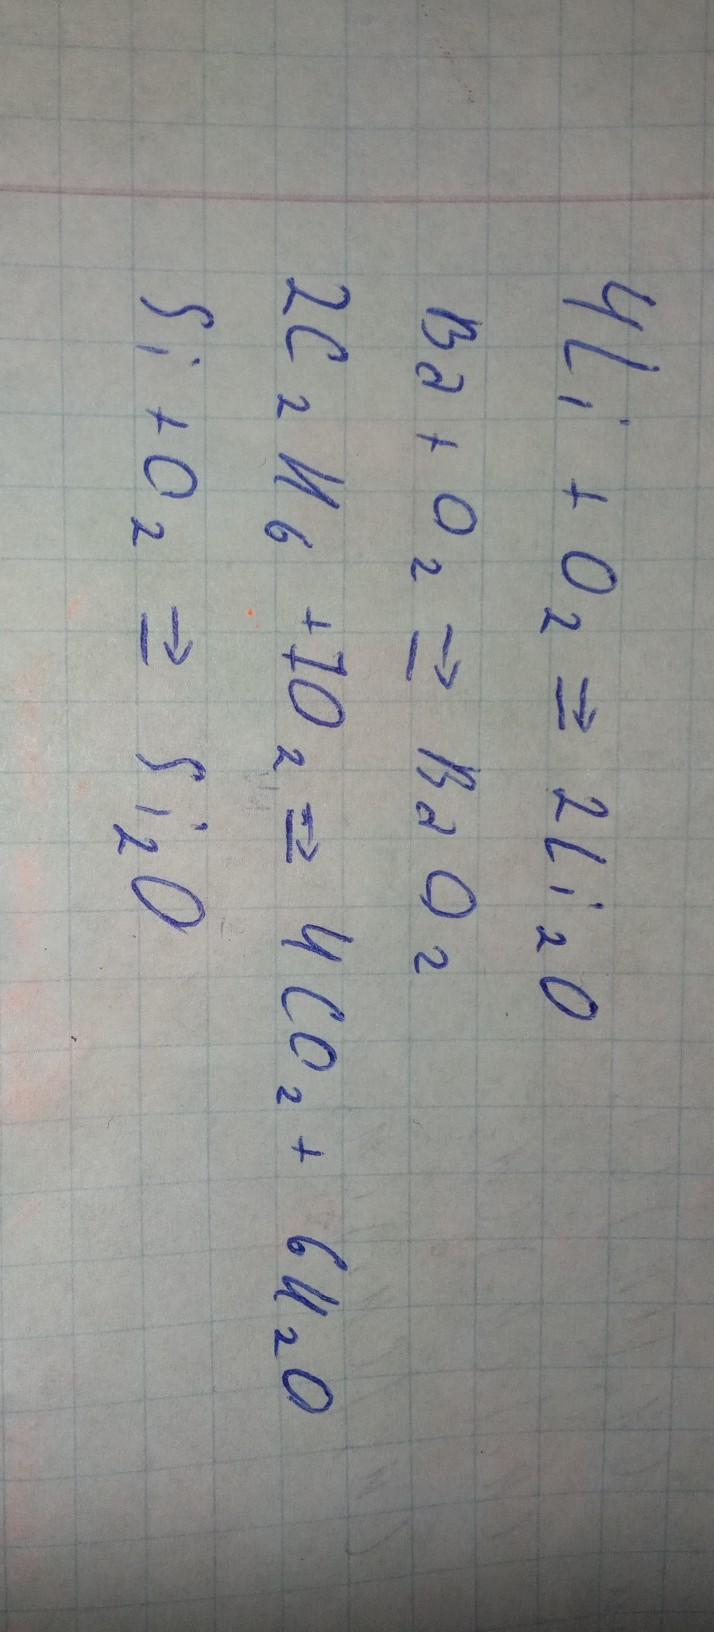 4Li + O₂ ⇒ 2Li₂O
Ba + O₂ ⇒ BaO₂
2C₂H₆ + 7O₂ ⇒ 4CO₂ + 6H₂O
Si + O₂ ⇒ Si₂O